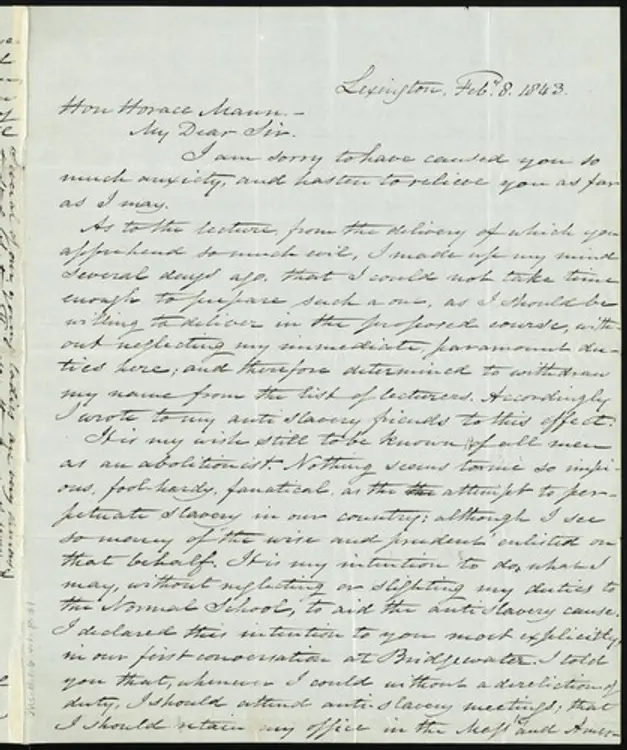 Lexington, Feb. 8. 1843.
Hon Horace Mann. –
My Dear Sir.
I am sorry to have caused you so
much anxiety, and hasten to relieve you as far
as I may.
As to the lecture, from the delivery of which you
apprehend so much evil, I made up my mind
several days ago, that I could not take time
enough to prepare such a one, as I should be
willing to deliver in the proposed course, with-
out neglecting my immediate, paramount du-
ties here; and therefore determined to withdraw
my name from the list of lecturers. Accordingly
I wrote to my anti slavery friends to this effect.
It is my wish still to be known of all men
as an abolitionist. Nothing seems to me so impi-
ous, fool-hardy, fanatical, as the the attempt to per-
petuate slavery in our country; although I see
so many of the wise and prudent enlisted on
that behalf. It is my intention to do, what I
may, without neglecting or slighting my duties to
the Normal School, to aid the anti slavery cause.
I declared this intention to you most explicitly,
in our first conversation at Bridgewater. I told
you that, whenever I could without a dereliction of
duty, I should attend anti-slavery meetings; that
I should retain my office in the Mass. and Amer-